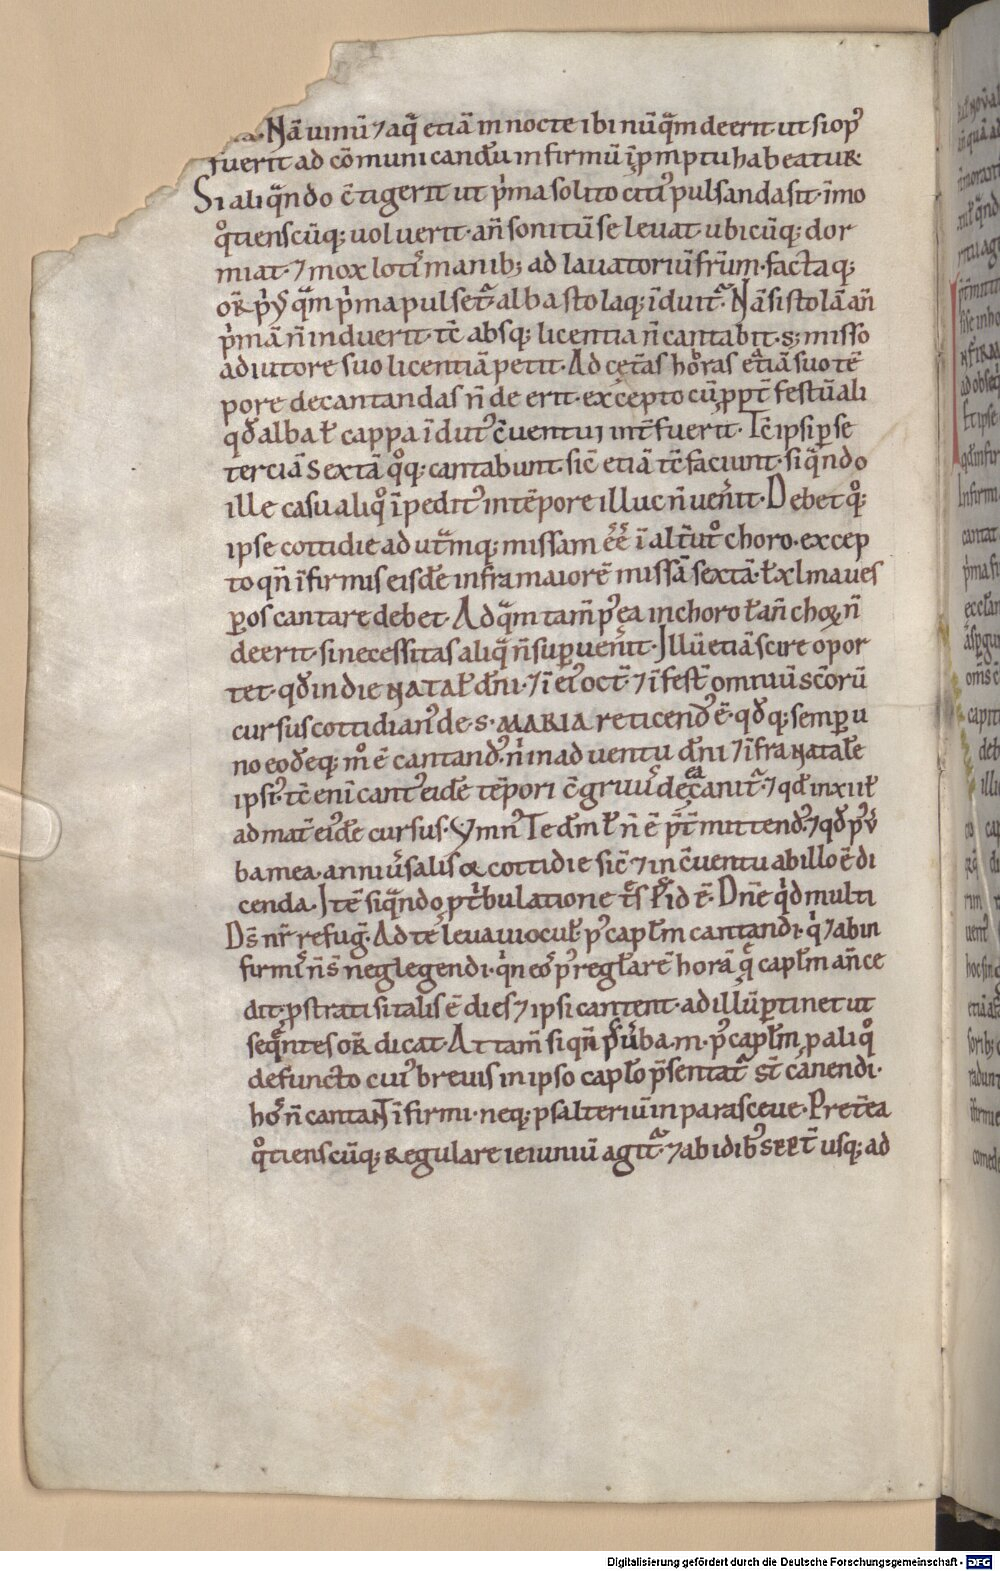 Nā uinū ⁊ aq̄ etiā in nocte ibi nūq̄m deerit ut si opꝰ
fuerit ad cōmunicandū infirmū ī ꝓmptu habeatur
Si aliq̄ndo c̄tigerit ut p̓ma solito citiꝰ pulsanda sit· imo
q̊tienscūq; uoluerit· an̄ sonitū se leuat ubicūq; dor
miat· ⁊ mox lotis manib; ad lauatoriū fr̄um· factaq;
q̄m p̓ma pulset᷑ alba stolaq; īduit᷑· Nā si stolā an̄
p̓mā n̄ induerit· tc̄ absq; licentia n̄ cantabit· s; misso
adiutore suo licentiā petit· Ad cet̄as horas etiā suo tē
pore decantandas n̄ deerit· excepto cū ꝓpt̄ festū ali
qđ alba ł cappa īdutꝰ c̄uentui int̄fuerit· Tc̄ ipsi ꝑ se
terciā sextā q̊q; cantabunt· sic̄ etiā tc̄ faciunt· si q̄ndo
ille casu aliq̊ īpeditꝰ in tēpore illuc n̄ uen̄it· Debet q̊;
ipse cottidie ad ut̄mq; missam ēē ī alt̄ut̊ choro· excep
to qn̄ īfirmis eisdē infra maiorē missā sextā· ł xl ma ues
ꝑos cantare debet· Ad q̄m tam̄ pꝰea in choro ł an̄ chorū n̄
deerit· si necessitas aliq̄ n̄ suꝑuen̄it· Illū etiā scire opor
tet· qđ in die NATAł dn̄i· ⁊ ī eiꝰ oct̄· ⁊ ī fest̄ omniū sc̄orū
cursus cottidianꝰ de· s· MARIA reticendꝰ ē· qđq; semꝑ u
no eodēq; m̊ ē cantandꝰ· n̄ in aduentu dn̄i ⁊ īfra natałe
ipsiꝰ· tc̄ eni cantꝰ eidē tēpori c̄gruus de ea canit᷑· ⁊ qđ in xii ł
ad mat̄ eiꝰdē cursus· ymnꝰ Te dm̄ ł n̄ ē p̄t̄mittendꝰ· ⁊ qđ pꝰ ū
ba mea· anniūsalis & cottidie sic̄ ⁊ in c̄uentu ab illo ē di
cenda· Itē si q̄ndo ꝓ t̓bulatione id ē· Dn̄e q̓d multi
Ds̄ nr̄ refuḡ· Ad te leuaui ocuł· pꝰ capłm cantandi· q̓ ⁊ ab in
firmis n̄ s̄ neglegendi· q̓n eos pꝰ regłarē horā q̄ capłm an̄ce
dit· ꝓstrati si talis ē dies ⁊ ipsi cantent· ad illū ꝑtinet ut
seq̄ntes or̄ dicat· At tam̄ si qn̄ ūba· m· pꝰ capłm ꝓ aliq̊
defuncto cuiꝰ breuis in ipso capło p̄sentat᷑ st̄ canendi·
hos n̄ cantaNt īfirmi· neq; psalteriū in parasceue· Pret̄ea
q̊tienscūq; regulare ieiuniū agit᷑· ⁊ ab idibꝰ SEPT̄ usq; ad
Digitalisierung gefördert durch die Deutsche Forschungsgemeinschaft - DFG